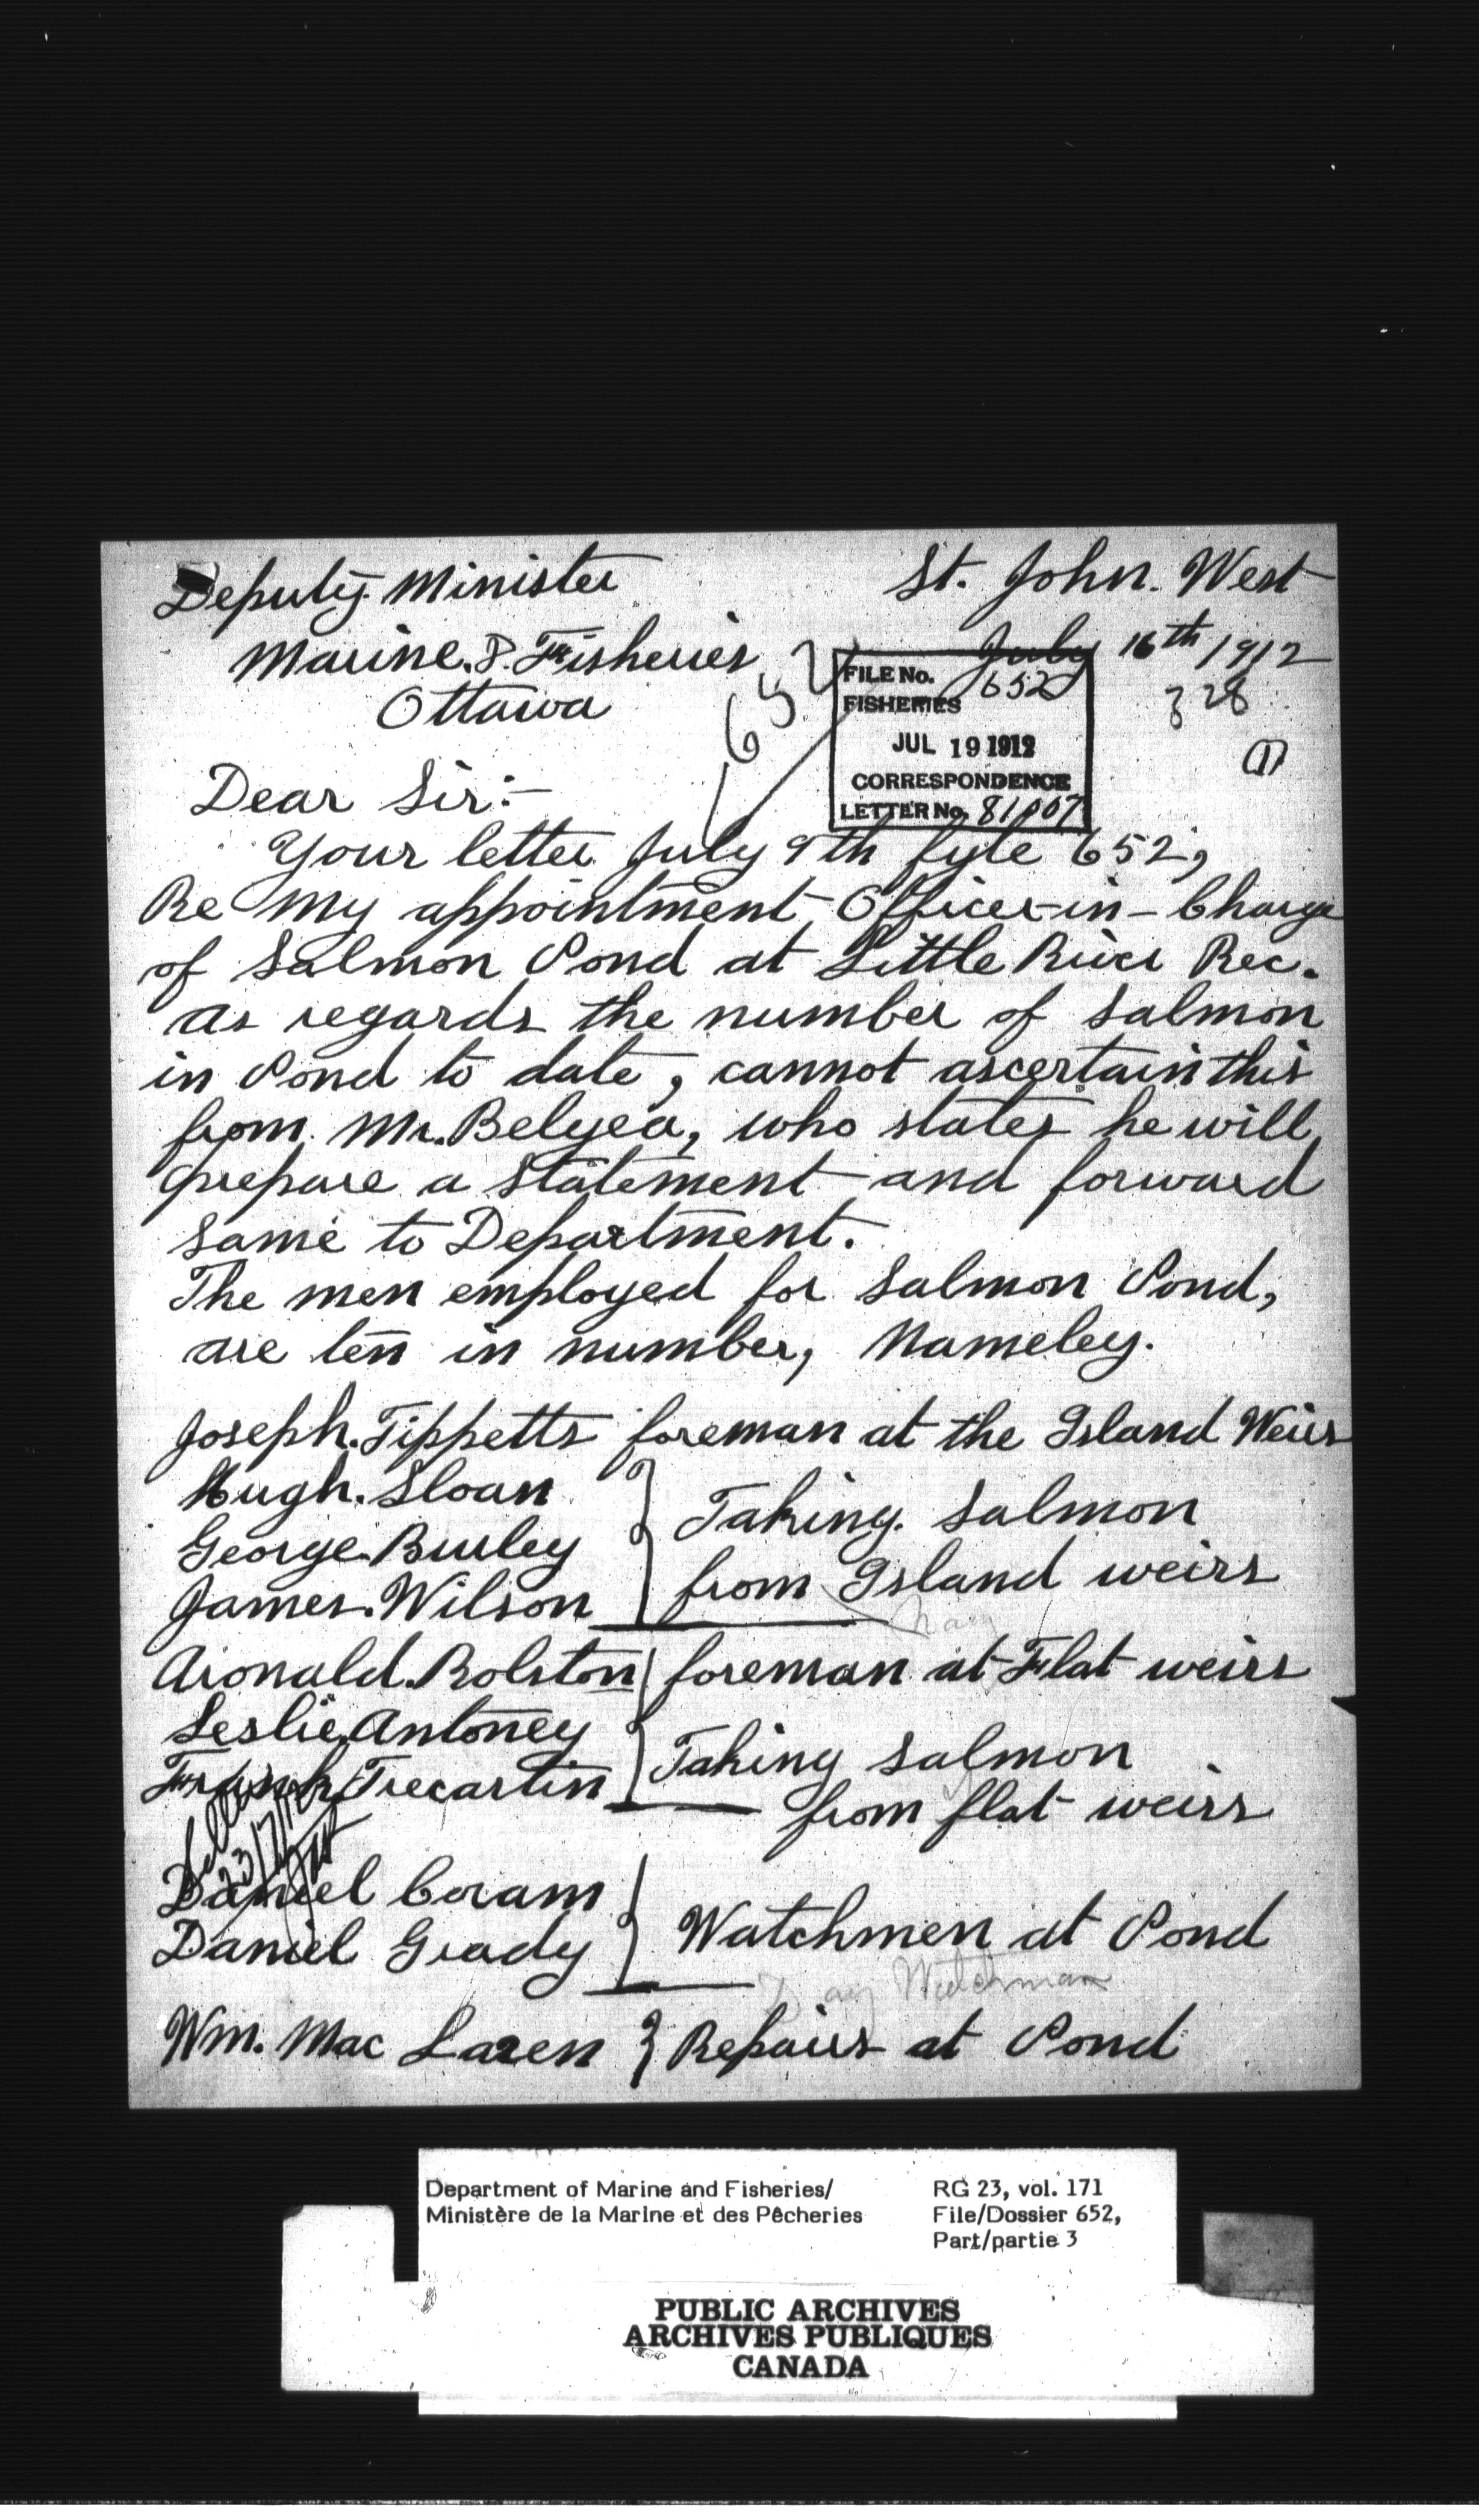 Deputy Minister
St. John. West
Marine. & Fisheries
July 16th/1912
Ottawa
652
328
(1)
FILE No. 652
FISHERIES
JUL 19 1912
CORRESPONDENCE
LETTER No. 81007
Dear Sir:-
Your letter July 9th fyle 652,
Re My appointment Officer-in-Charge
of Salmon Pond at Little River Rec.
as regards the number of Salmon
in Pond to date, cannot ascertain this
from Mr. Belyea, who states he will
prepare a Statement and forward
same to Department.
The men employed for Salmon Pond,
are ten in number, Nameley.
Joseph. Tippetts foreman at the Island Weirs
Hugh. Sloan
George. Burley
James. Wilson
Taking. Salmon
from Island weirs
Aronald. Rolston foreman at Flat weirs
Leslie. Antoney
Frank Trecartin
Taking Salmon
from flat weirs
23/7/12
Daniel Coram
Daniel Grady
Watchmen at Pond
Day Watchman
Wm. Mac Laren } Repairs at Pond
Department of Marine and Fisheries/
Ministère de la Marine et des Pêcheries
RG 23, vol. 171
File/Dossier 652,
Part/partie 3
PUBLIC ARCHIVES
ARCHIVES PUBLIQUES
CANADA